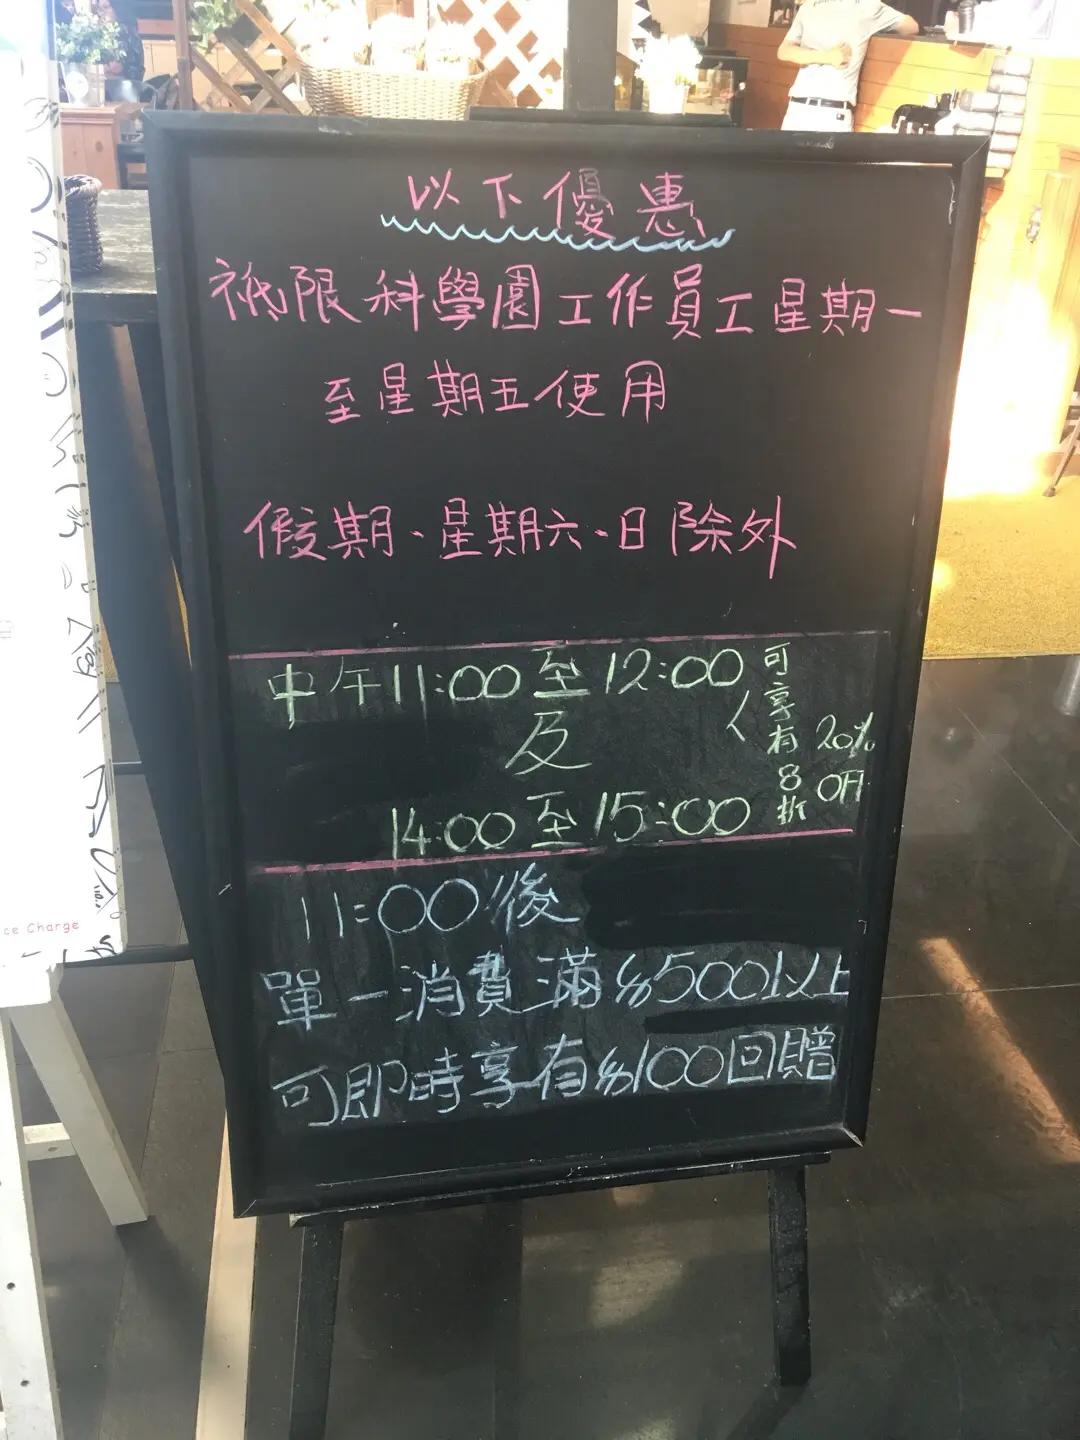 以下優惠
祗限科學園工作員工星期一
至星期五使用
假期、星期六、日除外
中午11:00至12:00
及
14:00至15:00
可享有8折
20%
OFF
11:00後
單一消費滿$500以上
可即時享有$100回贈
ce Charge